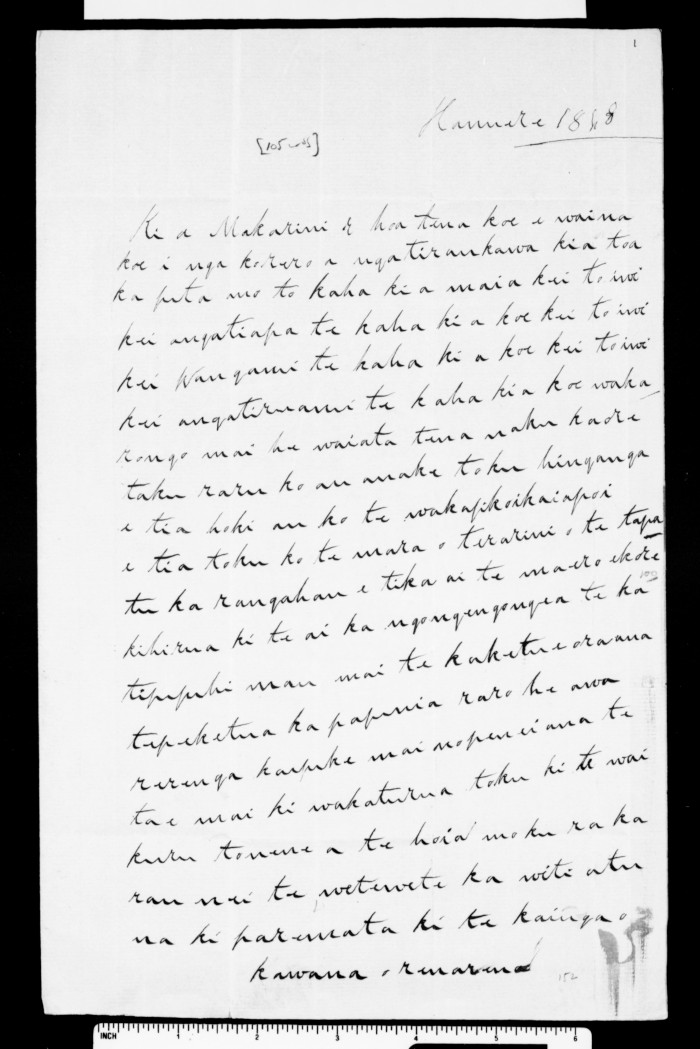 1
Hanuere 1848
[105 wds]
Ki a Makarini e hoa tena koe e waina
koe i nga korero a ngatiraukawa kia toa
ka puta mo to kaha ki a maia kei to iwi
kei angatiapa te kaha ki a koe kei to iwi
kei Wanganui te kaha ki a koe kei to iwi
kei angatiruanui te kaha kia koe waka
rongo mai he waiata tena naku kaore
taku raru ko au anake toku hinganga
e tia hoki au ko te wakapikoikaiapoi
e tia toku ko te mara o terarini o te tapa
tu ka rangahau e tika ai te maero ekore
100
kihirua ki te ai ka ngongengongea te ka
tipipuhi mau mai te kaketu e oraana
tepeketua ka papunia raro he awa
rerenga kaipuke mai nopeneiana te
tae mai ki wakaturua toku ki te wai
kuru tonene a te hoia moku ra ka
rau nei te wetewete ka witi atu
na ki paremata ki te kainga o
kawana o renarena
152